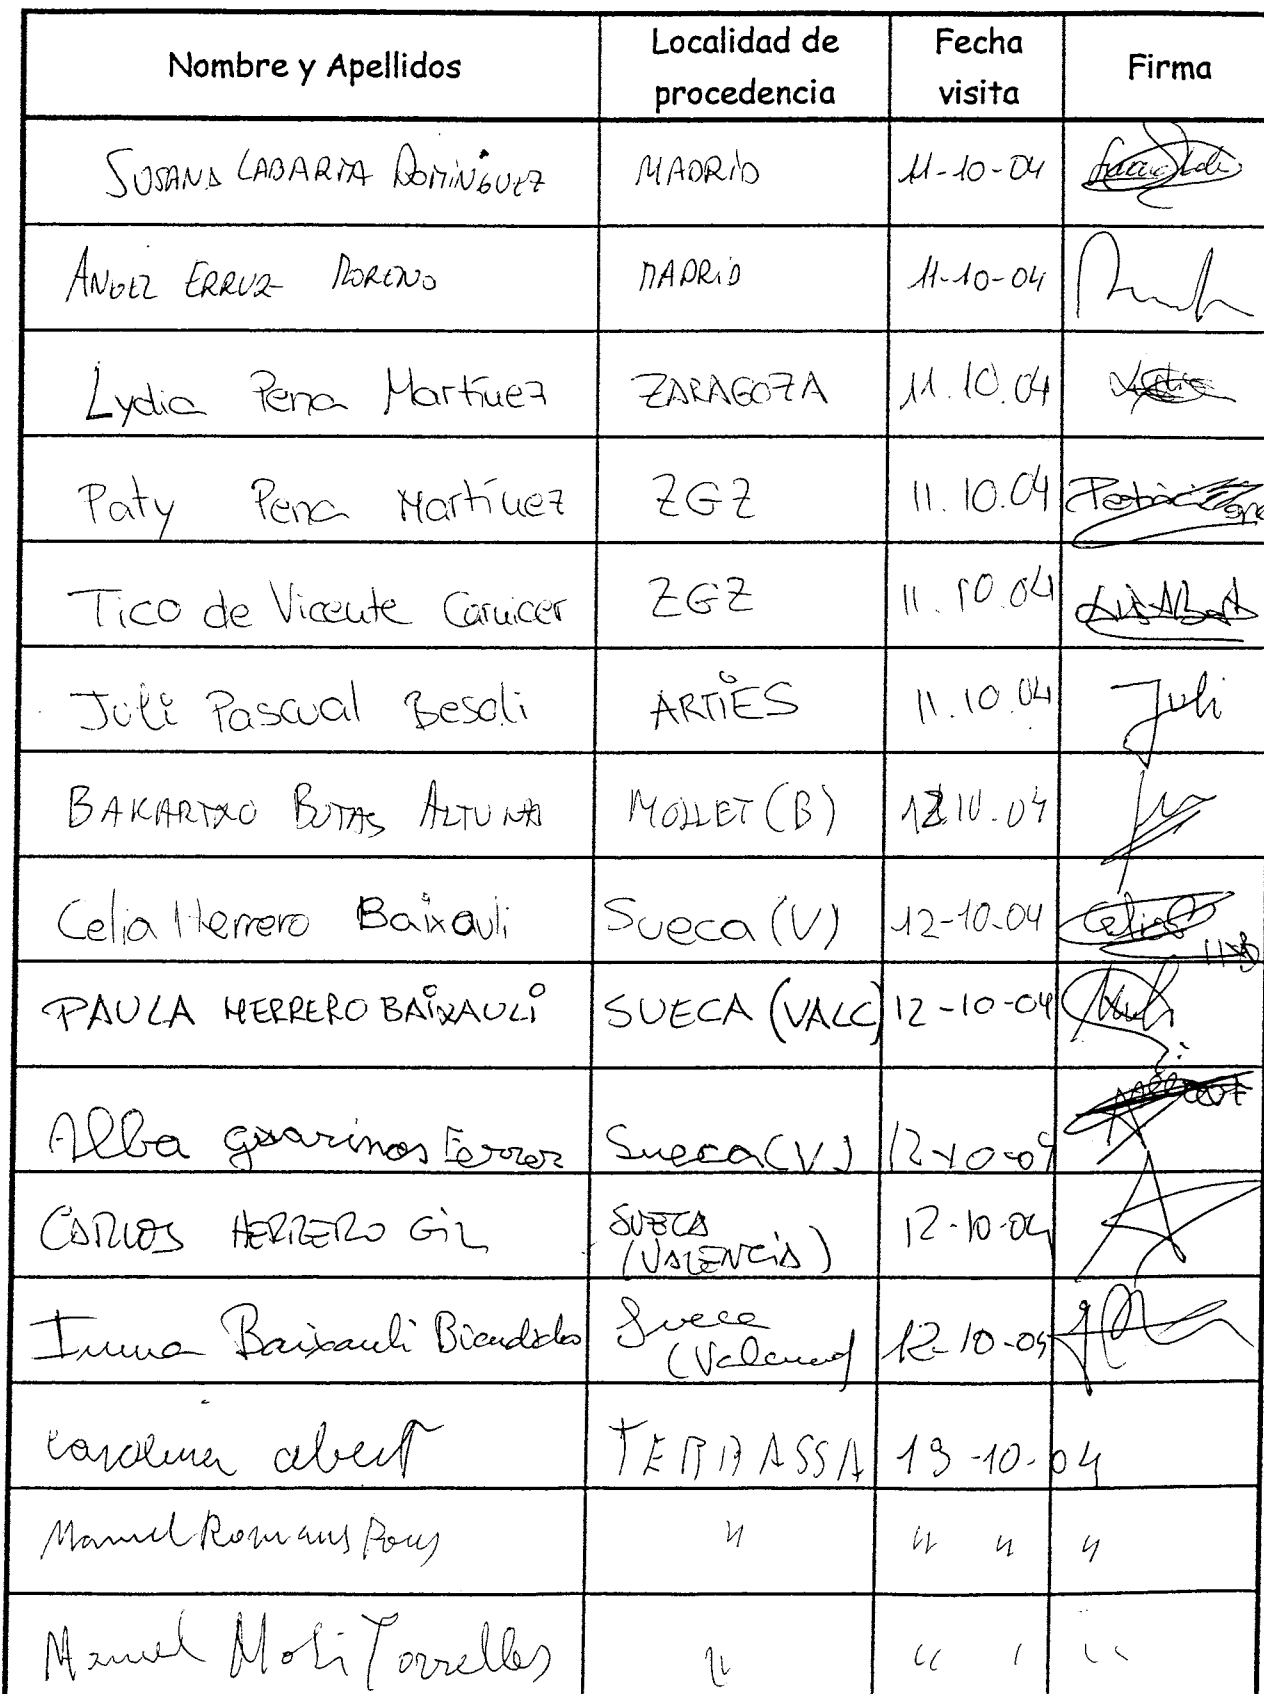 Nombre y Apellidos Localidad de procedencia Fecha visita Firma
SUSANA LABARTA DOMINGUEZ MADRID 11-10-04
ANGEL ERRUZ MORENO MADRID 11-10-04
Lydia Pena Martínez ZARAGOZA 11.10.04
Paty Pena Martínez ZGZ 11.10.04
Tico de Vicente Carnicer ZGZ 11.10.04
Juli Pascual Besoli ARTIES 11.10.04 Juli
BAKARTXO BUTAS ALTUNA MOLLET (B) 12.10.04
Celia Herrero Baixauli Sueca (V) 12-10-04 Celia
PAULA HERRERO BAIXAULI SUECA (VALC) 12-10-04
Alba guarinos Ferrer Sueca (V) 12-10-04
CARLOS HERRERO GIL SUECA (VALENCIA) 12-10-04
Inma Baixauli Sueca (Valencia) 12-10-04
Carolina abert TERRASSA 13-10-04
Manuel Romans Pous " " " "
Manuel Moli Torrelles " " ' "